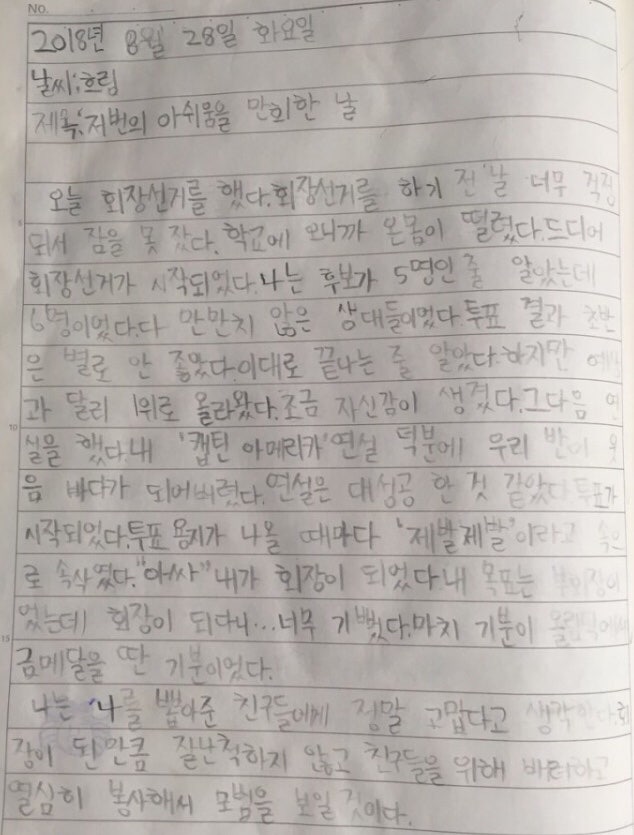 NO.
2018년 8월 28일 화요일
날씨:흐림
제목:저번의 아쉬움을 만회한 날
오늘 회장선거를 했다.회장선거를 하기 전 날 너무 걱정
되서 잠을 못 잤다. 학교에 오니까 온몸이 떨렸다.드디어
5
회장선거가 시작되었다.나는 후보가 5명인 줄 알았는데
6명이었다.다 만만치 않은 상대들이었다.투표 결과 초반
은 별로 안 좋았다.이대로 끝나는 줄 알았다.하지만 예상
과 달리 1위로 올라왔다.조금 자신감이 생겼다.그다음 연
10
설을 했다.내 '캡틴 아메리카'연설 덕분에 우리 반이 웃
음 바다가 되어버렸다.연설은 대성공 한 것 같았다 투표가
시작되었다.투표 용지가 나올 때마다 '제발제발'이라고 속으
로 속삭였다."아싸"내가 회장이 되었다.내 목표는 부회장이
었는데 회장이 되다니...너무 기뻤다.마치 기분이 올림픽에서
15
금메달을 딴 기분이었다.
나는 나를 뽑아준 친구들에게 정말 고맙다고 생각한다.회
장이 된만큼 잘난척하지 않고 친구들을 위해 배려하고
열심히 봉사해서 모범을 보일 것이다.